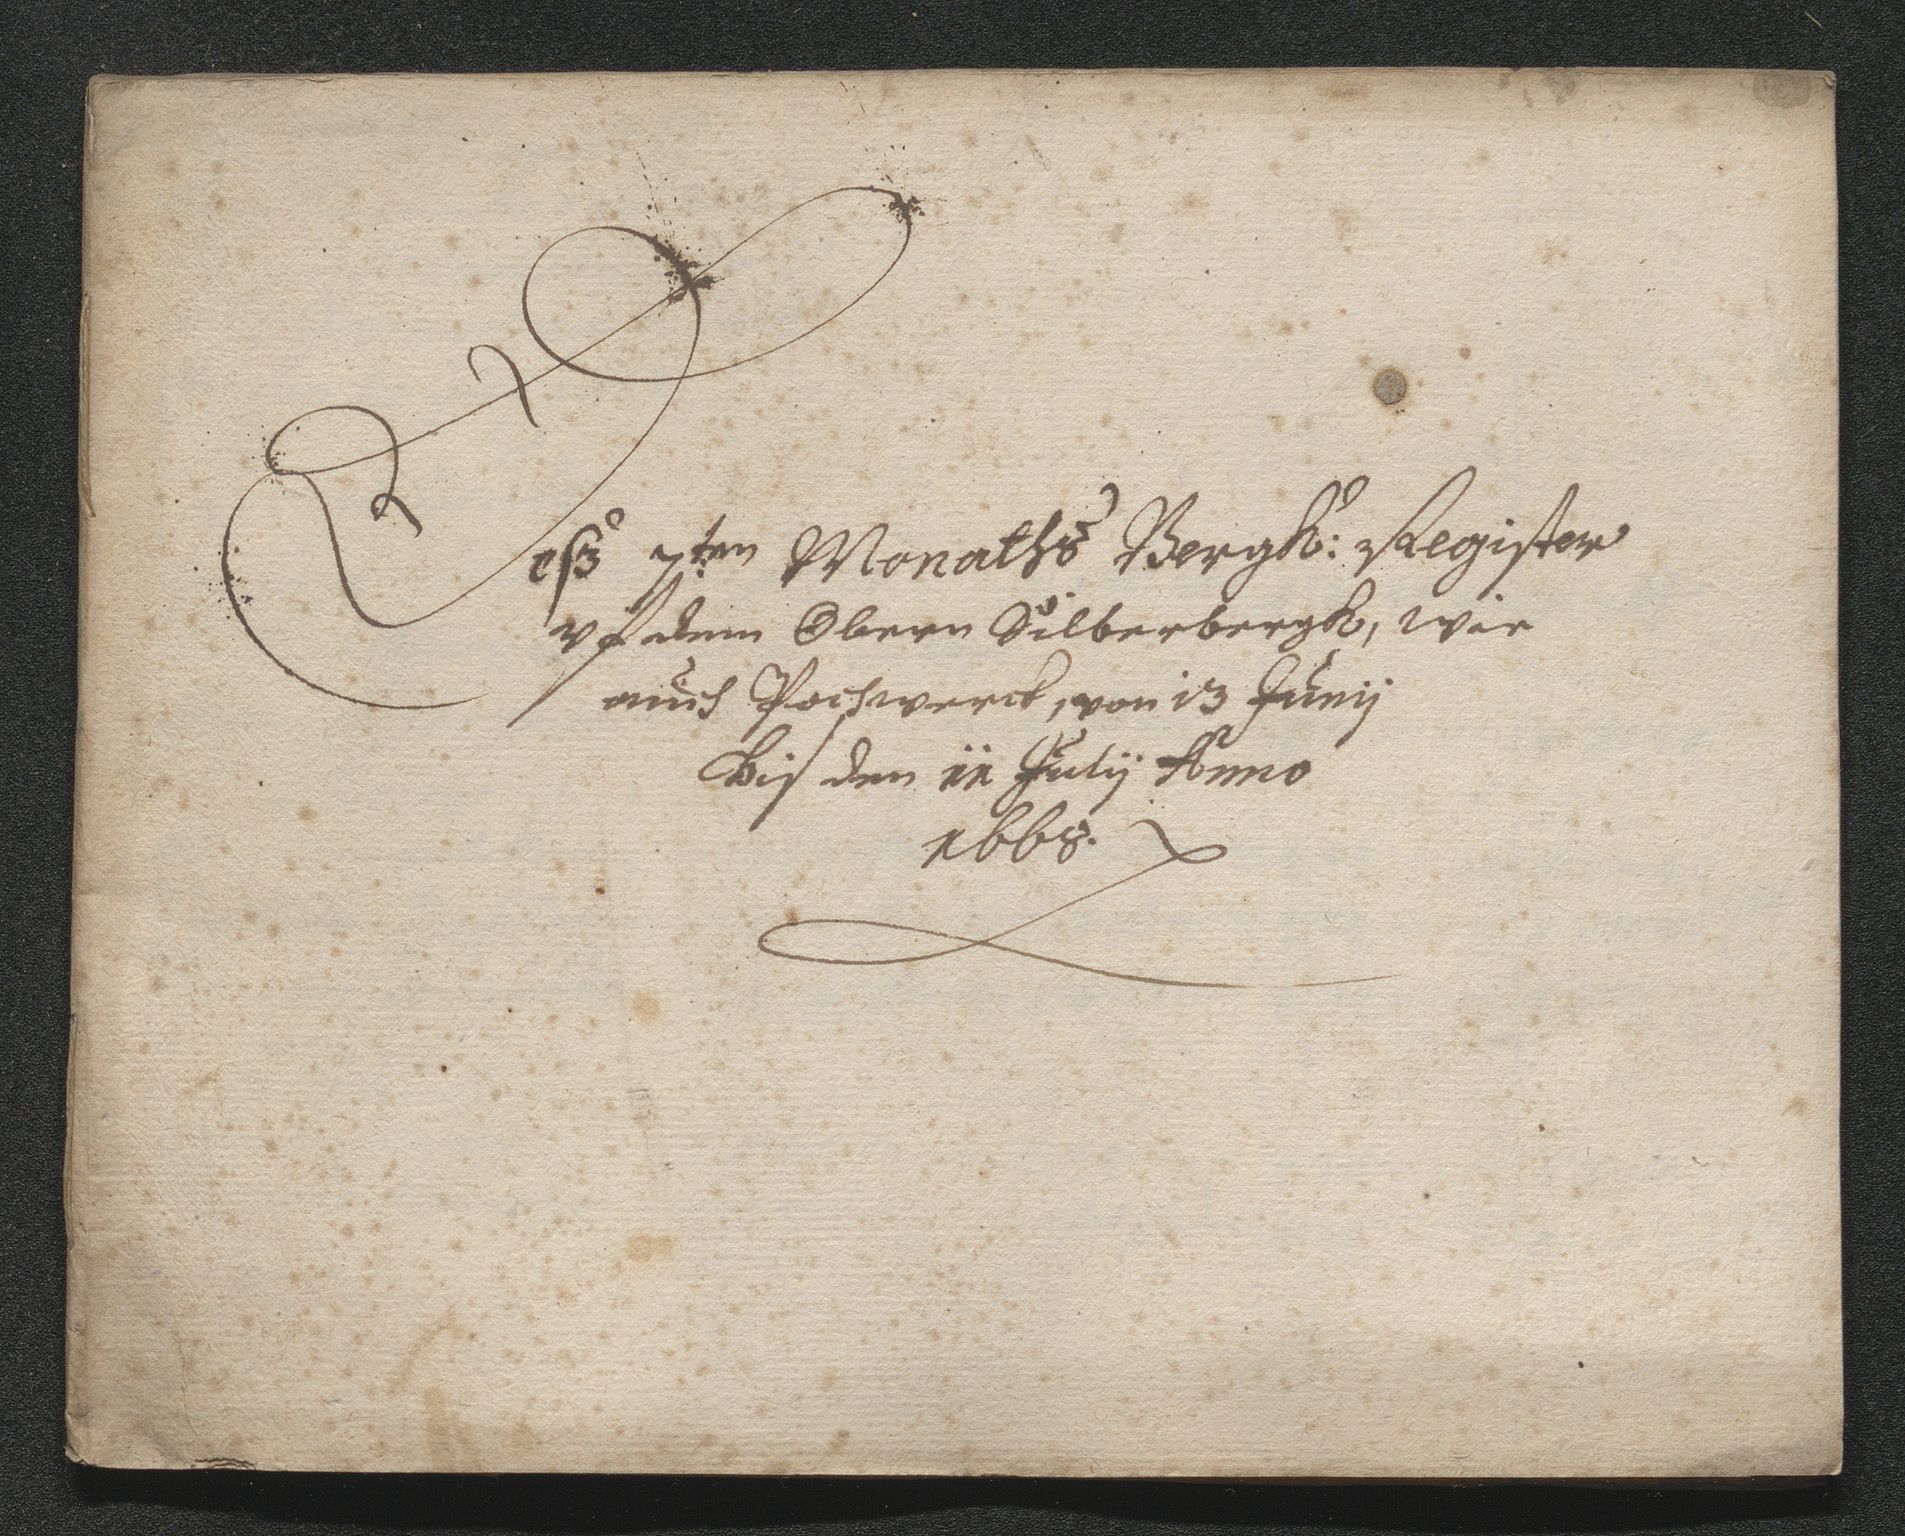 Deß 7ten Monaths Bergk: Register
vf dem Obern Silberbergk, wie
auch Pochwerck, von 13 Junij
biß den 11 Julij Anno
1668.